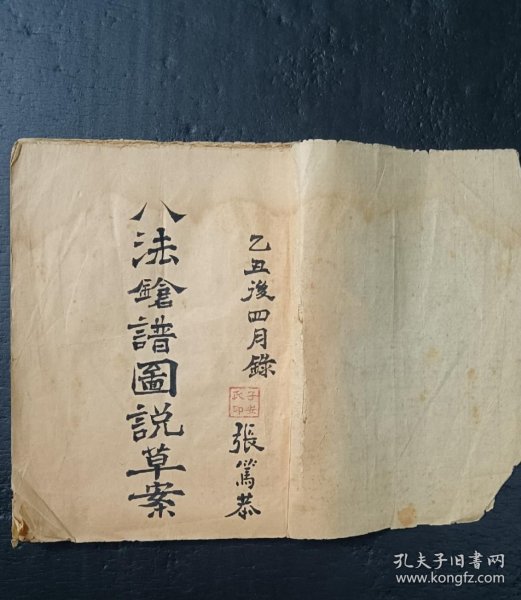 八法鎗譜圖説草案
乙丑後四月錄
張篤恭
孔夫子旧书网
www.kongfz.com